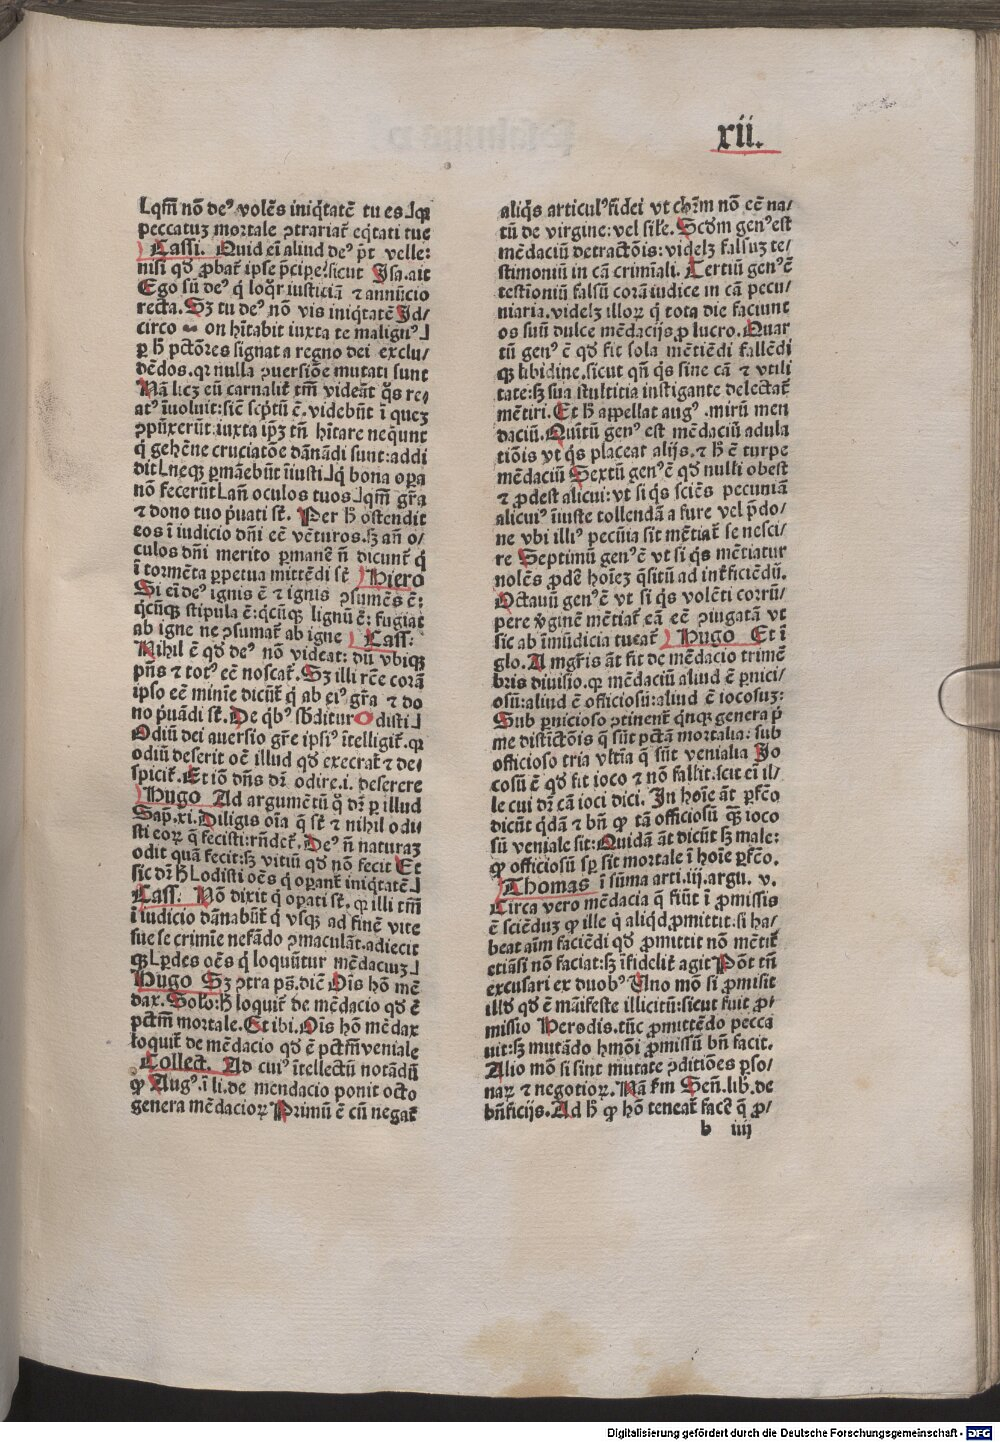 xii.
Lqm̄ nō deꝰ volēs iniq̇tatē tu es⅃qꝛ
peccatuꝫ mortale ꝯtrariat̄ eq̇tati tue
Cassi. Quid ei aliud deꝰ p̄t velle:
nisi qd̄ ꝓbat̄ ipse p̄cipe? sicut Isa. ait
Ego sū deꝰ q̇ loq̇r iusticiā ⁊ annūcio
recta. Sꝫ tu deꝰ nō vis iniq̇tatē Id/
circo on hītabit iuxta te malignꝰ⅃
ꝑ h̄ pctōres signat a regno dei exclu/
dēdos. qꝛ nulla ꝯuersiōe mutati sunt
Nā licꝫ eū carnalit̄ tm̄ videāt q̇s re
atꝰ īuoluit: sic scp̄tū ē. videbūt ī queꝫ
ꝯpūxerūt: iuxta ip̄ꝫ tn̄ hītare neq̇unt
q̇ gehēne cruciatōe dānādi sunt: addi
dit Lneqꝫ ꝑmāebūt īiusti⅃q̇ bona oꝑa
nō fecerūt Lan̄ oculos tuos⅃qm̄ gr̄a
⁊ dono tuo ṗuati st̄. Per h̄ ostendit
eos ī iudicio dn̄i eē vēturos. sꝫ an̄ o/
culos dn̄i merito ꝑmanē n̄ dicunt̄ q̇
ī tormēta ꝑpetua mittēdi st̄ Hiero
Si ei deꝰ ignis ē ⁊ ignis ꝯsumēs ē:
q̇cūqꝫ stipula ē: q̇cūqꝫ lignū ē: fugiat
ab igne ne ꝯsumat̄ ab igne Cass:
Nihil ē qd̄ deꝰ nō videat: dū vbiqꝫ
p̄n̄s ⁊ totꝰ eē noscat̄. Sꝫ illi rc̄e corā
ipso eē minīe dicūt̄ q̇ ab eiꝰ gr̄a ⁊ do
no ṗuādi st̄. De q̇bꝰ sb̄ditur Odisti⅃
Odiū dei auersio gr̄e ipsiꝰ ītelligit̄. qꝛ
odiū deserit oē illud qd̄ execrat̄ ⁊ de/
spicit̄. Et iō dn̄s dr̄ odire .i. deserere
Hugo Ad argumētū q̇ dr̄ ꝑ illud
Sap. xi. Diligis oīa q̄ st̄ ⁊ nihil odi
sti eoꝝ q̄ fecisti: rn̄det̄. Deꝰ n̄ naturaꝫ
odit quā fecit: sꝫ vitiū qd̄ nō fecit Et
sic dr̄ h̄ Lodisti oēs q̇ oꝑant̄ iniq̇tatē⅃
Cass: Nō dixit q̇ oꝑati st̄. qꝛ illi tm̄
ī iudicio dānabūt̄ q̇ vsqꝫ ad finē vite
sue se crimīe nefādo ꝯmaculāt. adiecit
qꝫ Lꝑdes oēs q̇ loquūtur mēdaciuꝫ⅃
Hugo Sꝫ ꝯtra ps̄. dic̄ Oīs hō mē
dax. Solo: h̄ loquit̄ de mēdacio qd̄ ē
pctm̄ mortale. Et ibi. Oīs hō mēdax
loquit̄ de mēdacio qd̄ ē pctm̄ veniale
Collect. Ad cuiꝰ ītellectū notādū
ꝙ Augꝰ. ī li. de mendacio ponit octo
genera mēdacioꝝ Primū ē cū negat̄
aliq̇s articulꝰ fidei vt chr̄m nō eē na/
tū de virgine: vel sile. Scd̄m genꝰ est
mēdaciū detractōis: videlꝫ falsuꝫ te/
stimoniū in cā crimīali. Tertiū genꝰ ē
testīoniū falsū corā iudice in cā pecu/
niaria. videlꝫ illoꝝ q̇ tota die faciunt
os suū dulce mēdacijs ꝓ lucro. Quar
tū genꝰ ē qd̄ fit sola mētiēdi fallēdi
qꝫ libidine. sicut qn̄ q̇s sine cā ⁊ vtili
tate: sꝫ sua stultitia instigante delectat̄
mētiri. Et h̄ appellat augꝰ. mirū men
daciū. Quītū genꝰ est mēdaciū adula
tiōis vt q̇s placeat alijs. ⁊ h̄ ē turpe
mēdaciū Sextū genꝰ ē qd̄ nulli obest
⁊ ꝓdest alicui: vt si q̇s sciēs pecuniā
alicuiꝰ īiuste tollendā a fure vel p̄do/
ne vbi illiꝰ pecūia sit mētiat̄ se nesci/
re Septimū genꝰ ē vt si q̇s mētiatur
nolēs ꝓdē hoīeꝫ q̄sitū ad int̄ficiēdū.
Octauū genꝰ ē vt si q̇s volēti corrū/
pere v̄ginē mētiat̄ eā eē ꝯiugatā vt
sic ab īmūdicia tueat̄ Hugo Et ī
glo. A mgr̄is āt fit de mēdacio trimē
bris diuisio. qꝛ mēdaciū aliud ē ꝑnici/
osū: aliud ē officiosū: aliud ē iocosuꝫ:
Sub ꝑnicioso ꝯtinent̄ q̇nqꝫ genera ṗ
me distīctōis q̄ sūt pctā mortalia: sub
officioso tria vltīa q̄ sūt venialia Io
cosū ē qd̄ fit ioco ⁊ nō fallit. scit ei il/
le cui dr̄ cā ioci dici. In hoīe āt ꝑfc̄o
dicūt q̇dā ⁊ bn̄ ꝙ tā officiosū qꝫ ioco
sū veniale sit: Quidā āt dicūt sꝫ male:
ꝙ officiosū sꝑ sit mortale ī hoīe ꝑfc̄o.
Thomas ī sūma arti. iij. argu. v.
Circa vero mēdacia q̄ fiūt ī ꝓmissis
ē sciēduꝫ ꝙ ille q̇ aliq̇d ꝓmittit: si ha/
beat aīm faciēdi qd̄ ꝓmittit nō mētit̄
etiāsi nō faciat: sꝫ īfidelit̄ agit Pōt tn̄
excusari ex duobꝰ Uno mō si ꝓmisit
illd̄ qd̄ ē māifeste illicitū: sicut fuit ꝓ/
missio Herodis. tūc ꝓmittēdo pecca
uit: sꝫ mutādo hmōi ꝓmissū bn̄ facit.
Alio mō si sint mutate ꝯditiōes ꝑso/
naꝝ ⁊ negotioꝝ. Nā fm Sen̄. lib. de
bn̄ficijs. Ad h̄ ꝙ hō teneat̄ facē q̄ ꝓ/
b iiij
Digitalisierung gefördert durch die Deutsche Forschungsgemeinschaft - DFG